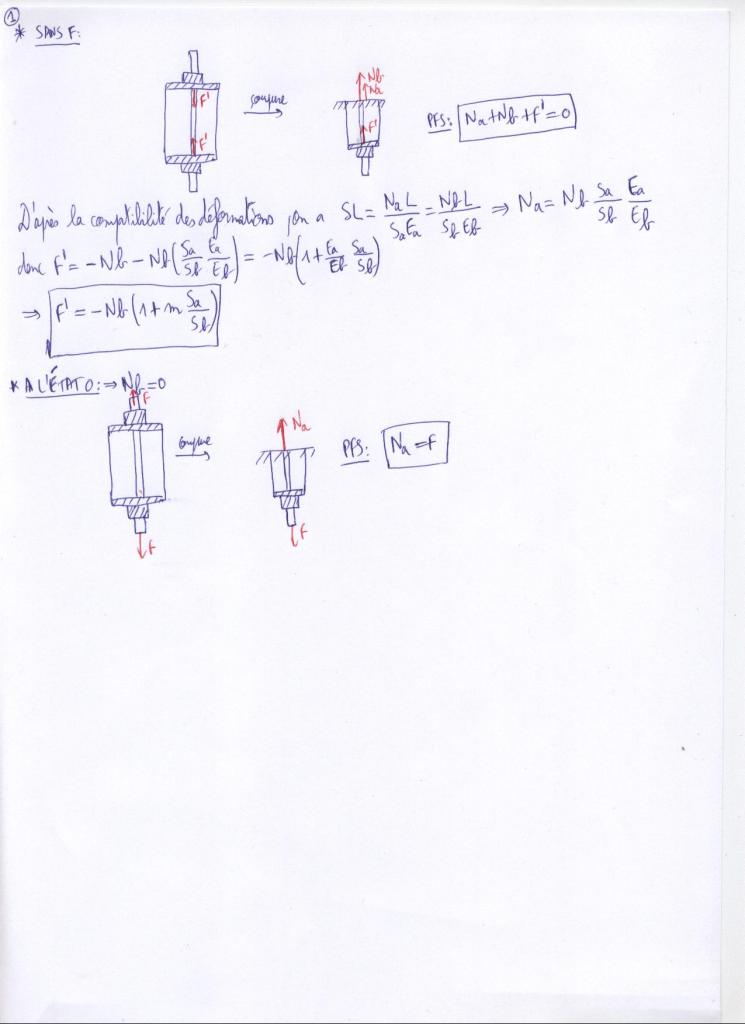 ①
* SANS F:
F'
F'
coupure
Nb
Na
F'
PFS: Na+Nb+F'=0
D'après la comptibilité des déformations, on a SL = NaL/SaEa = NbL/SbEb ⇒ Na = Nb Sa/Sb Ea/Eb
donc F' = -Nb - Nb(Sa/Sb Ea/Eb) = -Nb(1+ Ea/Eb Sa/Sb)
⇒ F' = -Nb(1+m Sa/Sb)
* A L'ÉTAT 0: ⇒ Nb=0
F
coupure
Na
PFS: Na = F
F
F